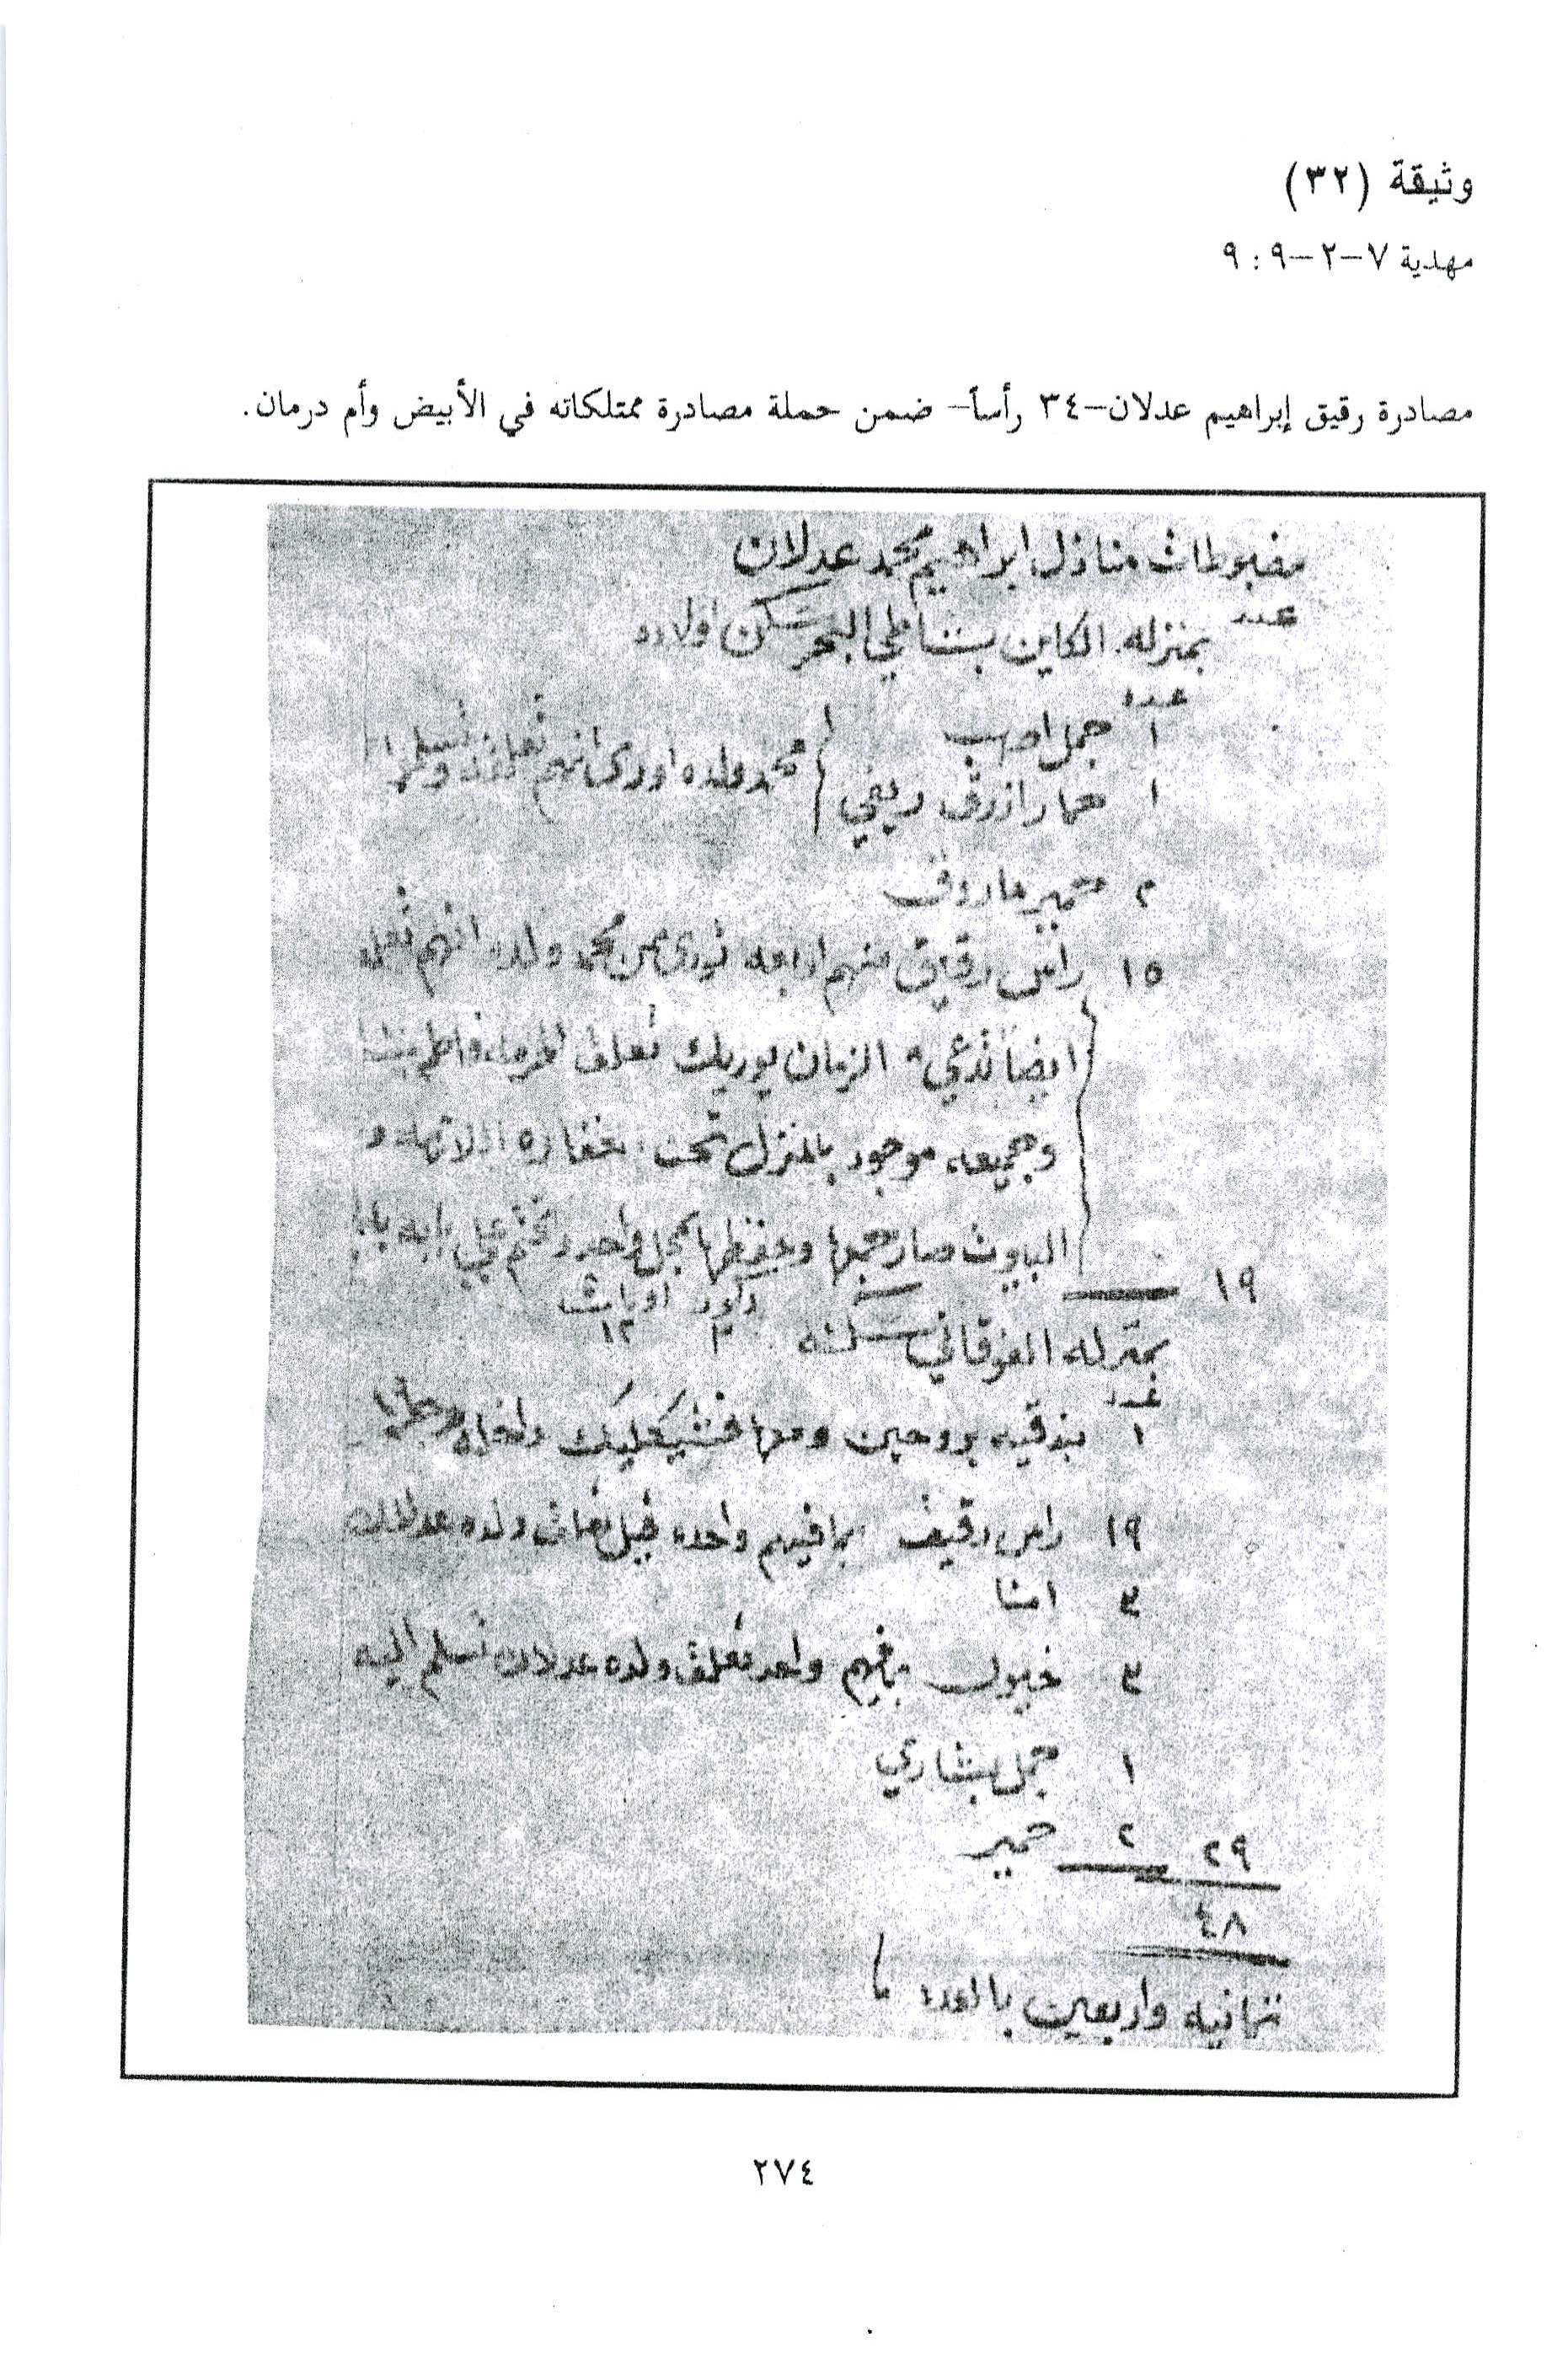 وثيقة (٣٢)
مهدية ٧-٢-٩ : ٩
مصادرة رقيق إبراهيم عدلان-٣٤ رأساً- ضمن حملة مصادرة ممتلكاته في الأبيض وأم درمان.
مضبوطات منازل ابراهيم محمد عدلان
عدد بمنزله الكاين بشاطي البحر سكن اولاده
عدد
١ جمل اصهب
١ حمار ازرق ريفي
محمد ولده انهم تعلقه
٢ حمير
١٥ راس رقيق منهم اربعه من محمد ولده انهم تعلقه
ايضا الزمان يوريك تعلق
وجميعه موجود بالمنزل تحت
صار جمعها وحفظها بمحل واحد وختم على بابه
١٩
بمنزله الفوقاني سكنه
٣ ١٢
عدد
١ بندقيه بروحين ومعها
١٩ راس رقيق بما فيهم واحده تعلق ولده عدلان
٣
٣ خيول بما فيهم واحد تعلق ولده عدلان تسلم اليه
١ جمل بشاري
٢٩ ٢ حمير
٤٨
ثمانيه واربعين بالعدد
٢٧٤